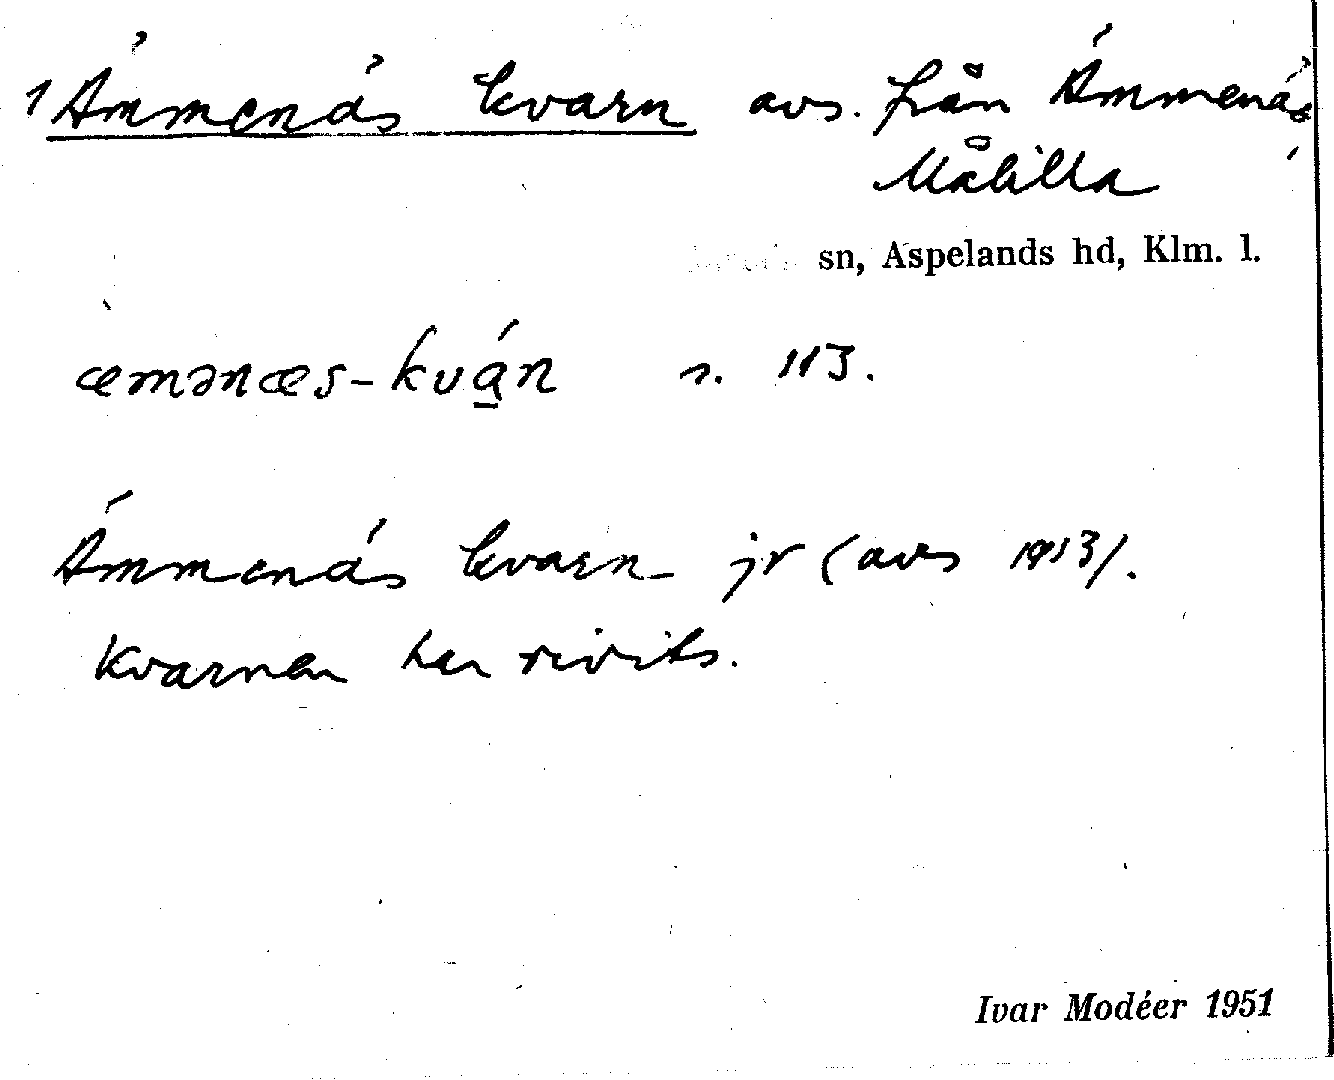 1 Ämmenäs kvarn avs. från Ämmenäs
Målilla
sn, Aspelands hd, Klm. l.
æmənæs-kván s. 113.
Ämmenäs kvarn jr (avs 1953).
Kvarnen har rivits.
Ivar Modéer 1951